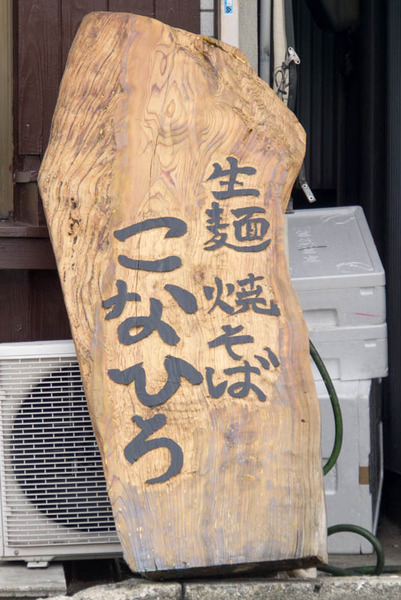 生麺
焼そば
こなひろ